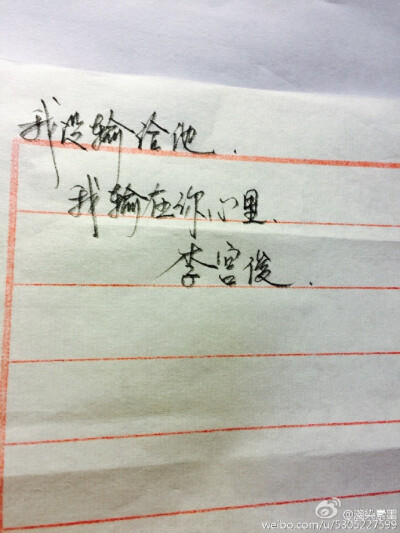 我没输给他.
我输在你心里.
李宫俊.
weibo.com/u/5305227599